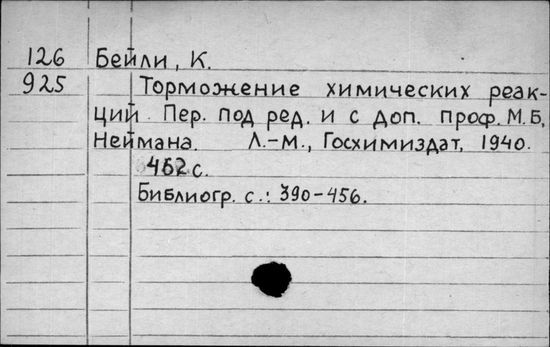 126 Бейли, К.
925 Торможение химических реак-
ций. Пер. под ред. и с доп. проф. М.Б.
Неймана. Л.-М., Госхимиздат, 1940.
462 с.
Библиогр. с.: 390-456.